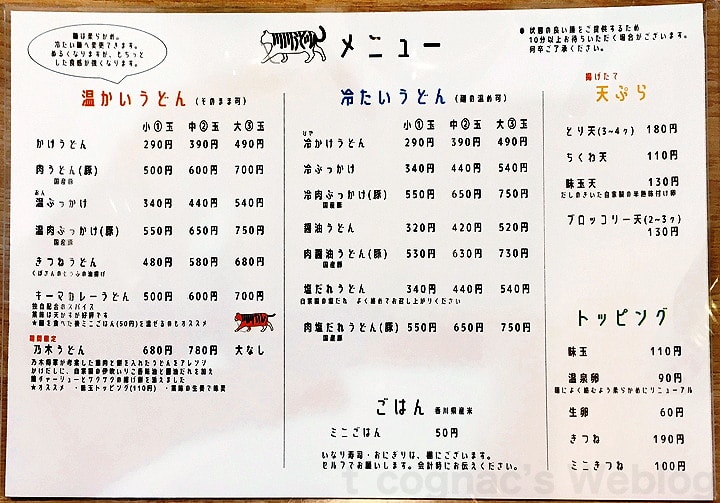 麺は柔らかめ。
冷たい麺へ変更できます。
ぬるくなりますが、もちっと
した食感が強くなります。
メニュー
● 状態の良い麺をご提供するため
10分以上お待ちいただく場合がございます。
何卒ご了承ください。
温かいうどん (そのまま可)
小①玉 中②玉 大③玉
かけうどん 290円 390円 490円
肉うどん(豚) 500円 600円 700円
国産豚
おん
温ぶっかけ 340円 440円 540円
温肉ぶっかけ(豚) 550円 650円 750円
国産豚
きつねうどん 480円 580円 680円
くぼさんのとうふの油揚げ
キーマカレーうどん 500円 600円 700円
独自配合のスパイス
薬味は天かすが好評です
★麺を食べた後ミニごはん(50円)を混ぜるのもオススメ
期間限定
乃木うどん 680円 780円 大なし
乃木将軍が考案した鶏肉と餅を入れたうどんをアレンジ
かけだしに、自家製の伊吹いりこ香味油と醤油だれを加え
鶏チャーシューとサクサクの揚げ餅を添えました
★オススメ ・味玉トッピング(110円) ・薬味の生姜で味変
冷たいうどん (麺の温め可)
小①玉 中②玉 大③玉
ひや
冷かけうどん 290円 390円 490円
冷ぶっかけ 340円 440円 540円
冷肉ぶっかけ(豚) 550円 650円 750円
国産豚
醤油うどん 320円 420円 520円
肉醤油うどん(豚) 530円 630円 730円
国産豚
塩だれうどん 340円 440円 540円
自家製の塩だれ よく絡めてお召し上がりください
肉塩だれうどん(豚) 550円 650円 750円
国産豚
ごはん 香川県産米
ミニごはん 50円
いなり寿司・おにぎりは、棚にございます。
セルフでお願いします。会計時にお伝えください。
揚げたて
天ぷら
とり天(3~4ヶ) 180円
ちくわ天 110円
味玉天 130円
だしのきいた自家製の半熟味付け卵
ブロッコリー天(2~3ヶ)
130円
トッピング
味玉 110円
温泉卵 90円
麺によく絡むよう柔らかめにリニューアル
生卵 60円
きつね 190円
ミニきつね 100円
t cognac's Weblog